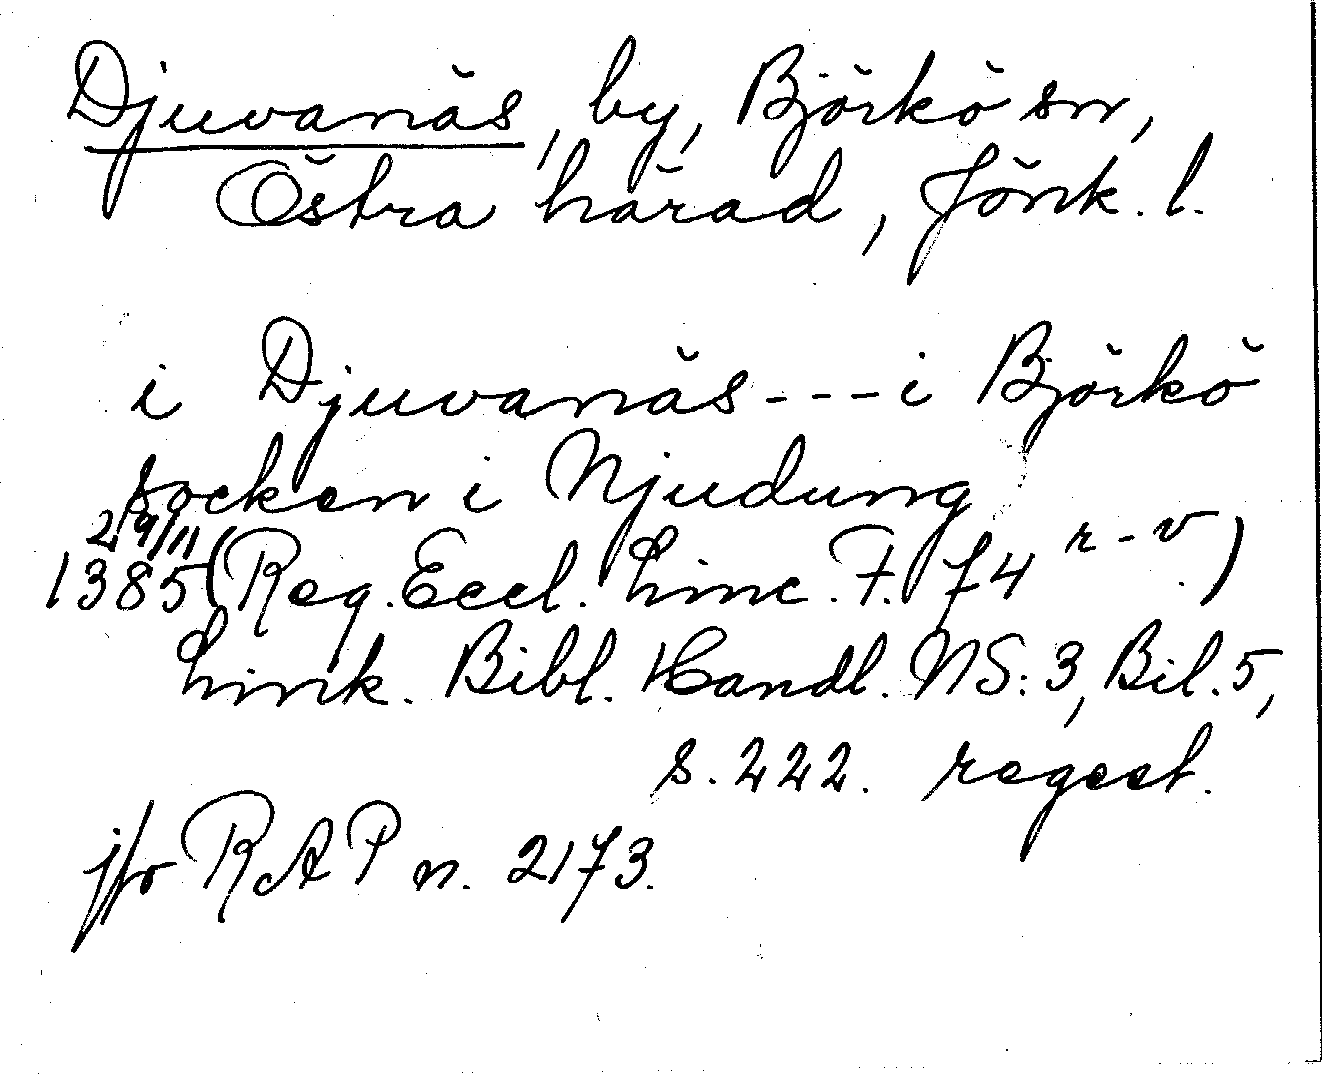 Djuvanäs, by, Björkö sn,
Östra härad, Jönk. l.
i Djuvanäs --- i Björkö
socken i Njudung
29/11
1385 (Reg. Eccl. Linc. F. 74 r-v)
Link. Bibl. Handl. NS: 3, Bil. 5,
s. 222. regest.
jfr RAP n. 2173.